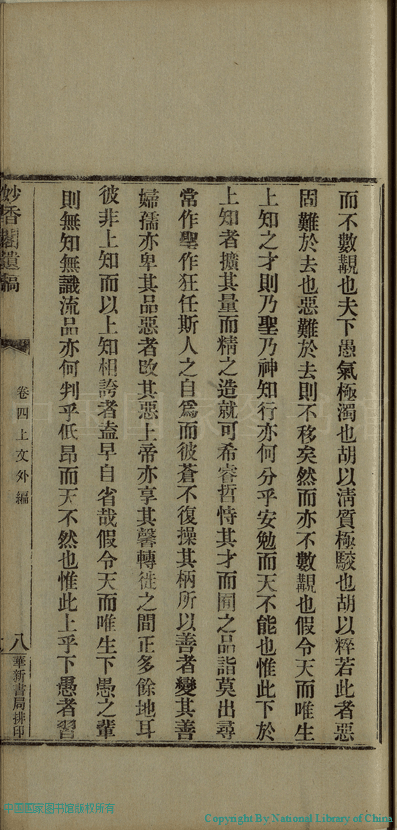 而不數覯也夫下愚氣極濁也胡以清質極駁也胡以粹若此者惡
固難於去也惡難於去則不移矣然而亦不數覯也假令天而唯生
上知之才則乃聖乃神知行亦何分乎安勉而天不能也惟此下於
上知者擴其量而精之造就可希睿哲恃其才而囿之品詣莫出尋
常作聖作狂任斯人之自爲而彼蒼不復操其柄所以善者變其善
婦孺亦卑其品惡者改其惡上帝亦享其馨轉徙之間正多餘地耳
彼非上知而以上知相誇者盍早自省哉假令天而唯生下愚之輩
則無知無識流品亦何判乎低昂而天不然也惟此上乎下愚者習
妙香閣遺稿
卷四上文外編
八
華新書局排印
中国国家图书馆版权所有
Copyright By National Library of China